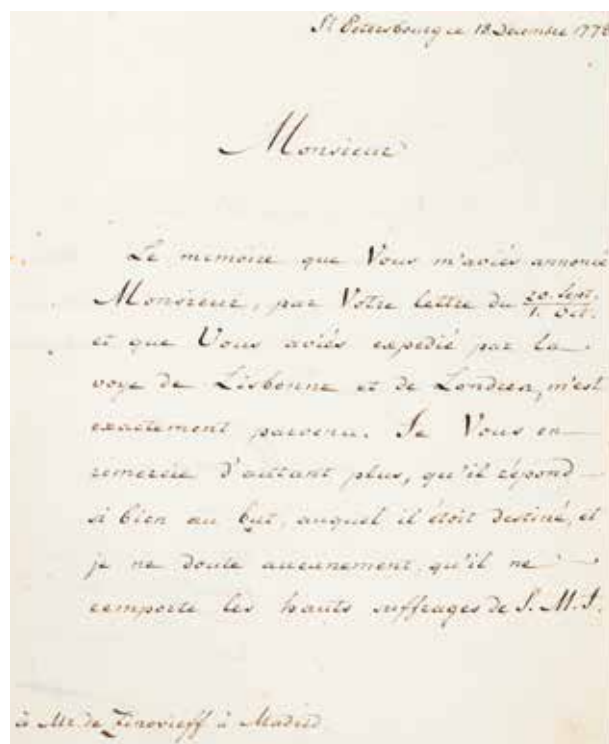 St Petersbourg ce 18 Decembre 1778
Monsieur
Le mémoire que Vous m'aviés annoncé
Monsieur, par Votre lettre du 20. Sept. / 1. Oct.
et que Vous aviés expedié par la
voye de Lisbonne et de Londres, m'est
exactement parvenu. Je Vous en
remercie d'autant plus, qu'il répond
si bien au but, auquel il étoit destiné, et
je ne doute aucunement, qu'il ne
remporte les hauts suffrages de S. M. I.
à Mr. de Zinovieff à Madrid